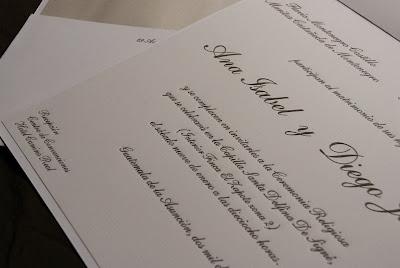 Montenegro Castillo
Maritza Castañeda de Montenegro
participan el matrimonio de sus
Ana Isabel y Diego
y se complacen en invitarle a la Ceremonia Religiosa
que se celebrará en la Capilla Santa Delfina De Signé,
(Interior Finca El Zapote zona 2)
el sábado nueve de enero a las dieciocho horas.
Guatemala de la Asunción, dos mil
Recepción
Centro de Convenciones
Hotel Camino Real